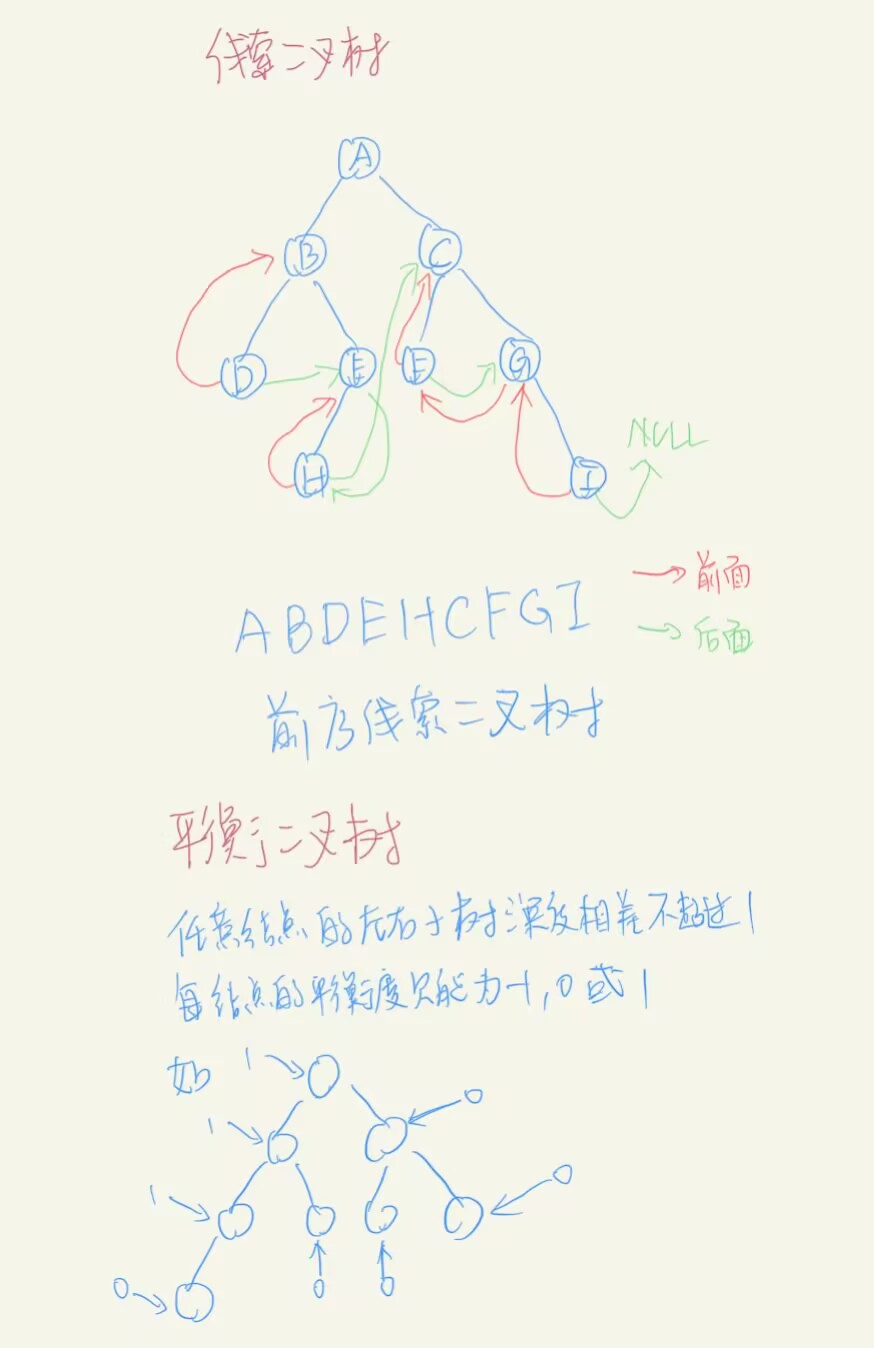 线索二叉树
A
B C
D E F G
H I
NULL
→前面
ABDEHCFGI
→后面
前序线索二叉树
平衡二叉树
任意结点的左右子树深度相差不超过1
每结点的平衡度只能为-1,0或1
如 1
0
1
0
1
0 0 0